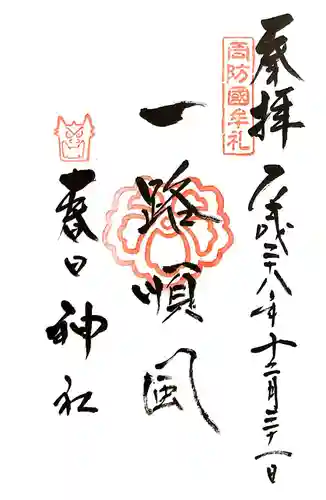 奉拝
周防國牟礼
平成二十八年十二月三十一日
一路順風
春日神社